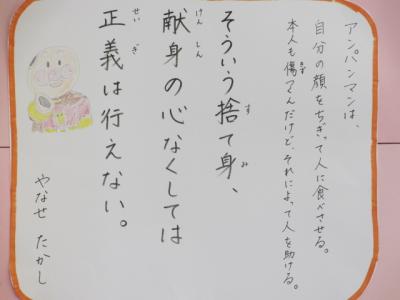 アンパンマンは、
自分の顔をちぎって人に食べさせる。
本人も傷つくんだけど、それによって人を助ける。
そういう捨て身、
献身の心なくしては
正義は行えない。
やなせ たかし